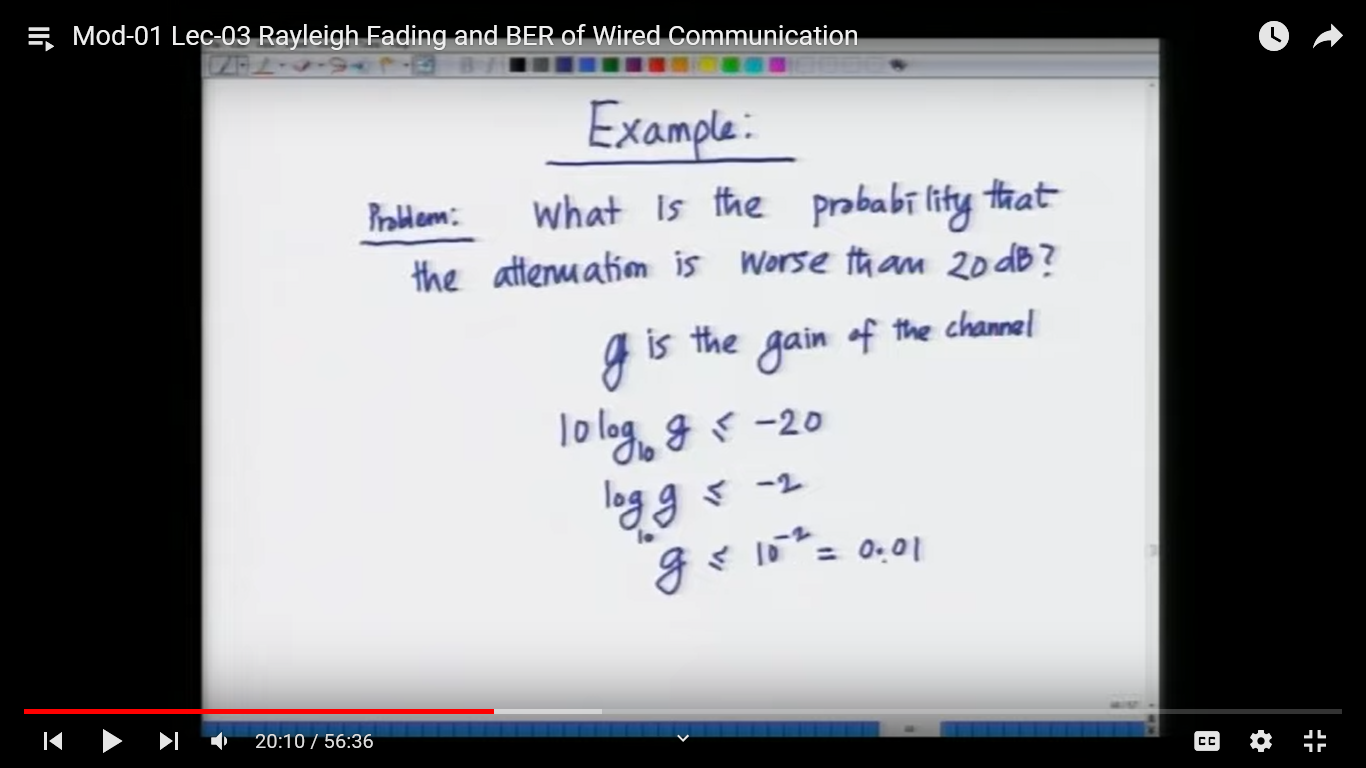 Mod-01 Lec-03 Rayleigh Fading and BER of Wired Communication
Example:
Problem: What is the probability that
the attenuation is worse than 20 dB?
g is the gain of the channel
10 log₁₀ g ≤ -20
log₁₀ g ≤ -2
g ≤ 10⁻² = 0.01
20:10 / 56:36
CC